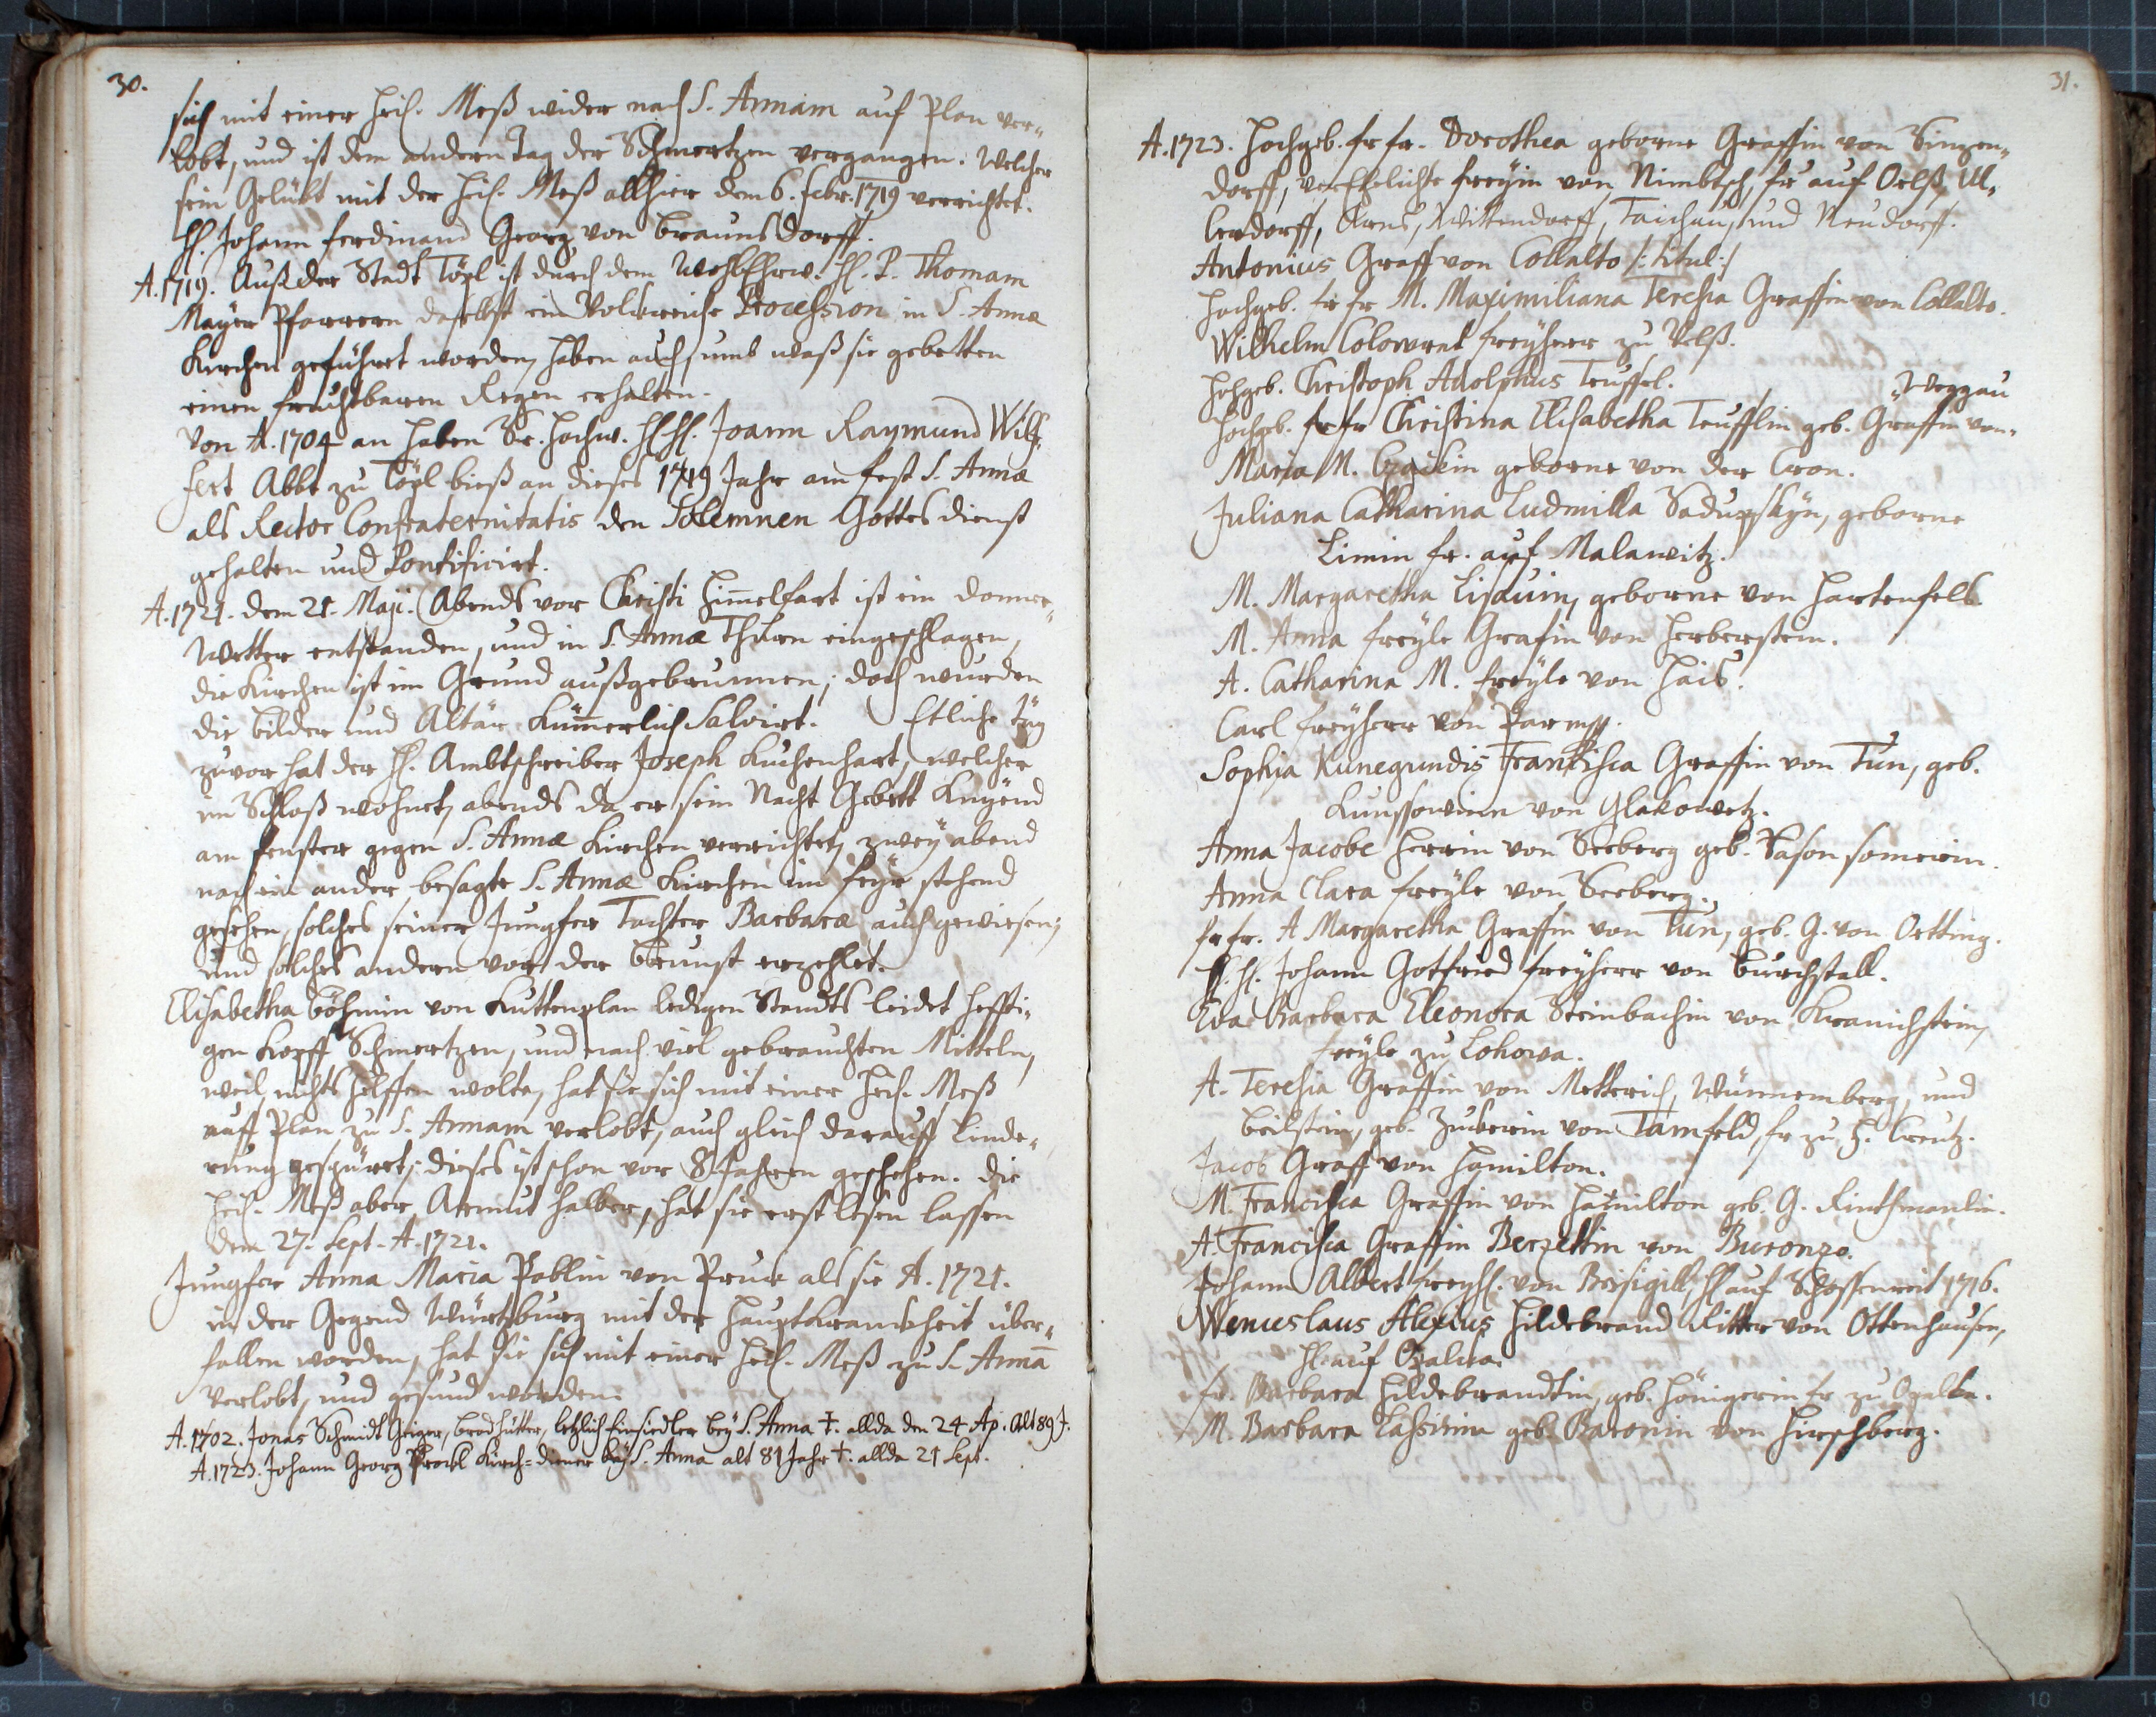 30.
sich mit einer Heil. Meß wider nach S. Annam auf Plan ver„
lobt, und ist dem andern Tag der Schmertzen vergangen. Welcher
sein Gelübt mit der Heil. Meß allhier dem 6. Febr. 1719 verrichtet.
H. Johann Ferdinand Georg von Braunsdorff.
A. 1719. Auß der Stadt Töpl ist durch dem WohlEhrw. H. P. Thomam
Mayer Pfarrern daselbst ein Volckreiche Procession in S. Annæ
Kirchen geführet worden, haben auch umb waß sie gebetten
einen fruchtbaren Regen erhalten.
Von A. 1704 an haben Sr. Hochw. HH. Joann Raymund Wilf„
fert Abbt zu Töpl bieß an dieses 1719 Jahr am Fest S. Annæ
als Rector Confraternitatis den Solemnen Gottesdienst
gehalten und Pontificirt.
A. 1721. dem 21. Maji. Abends vor Christi Him̄elfart ist ein Donner„
Wetter entstanden, und in S. Annæ Thurn eingeschlagen,
die Kirchen ist im Grund außgebrunnen; doch wurden
die Bilder und Altär küm̄erlich Salvirt. Etliche Täg
zuvor hat der H. Ambtschreiber Joseph Kuchenhart, welcher
im Schloß wohnet, abends da er sein Nacht Gebett Knyend
am Fenster gegen S. Annæ Kirchen verrichtet, zwey abend
nach ein ander besagte S. Annæ Kirchen im Feyr stehend
gesehen, solches seiner Jungfer Tochter Barbaræ auch gewiesen,
und solches andern vor der Brunst erzehlet.
Elisabetha Böhmin von Kuttenplan ledigen Standts leidet hefftī„
gen Kopff Schmertzen, und nach viel gebrauchten Mitteln,
weil nichts helffen wolte, hat sie sich mit einer Heil. Meß
auff Plan zu S. Annam verlobt, auch gleich darauff Linde„
rung gespüret, dieses ist schon vor 8 Jahren geschehen. Die
Heil. Meß aber, Armut halber, hat sie erst lesen lassen
dem 27. Sept. A. 1721.
Jungfer Anna Maria Poblin von Pruck als sie A. 1721.
in der Gegend Würtzburg mit der Hauptkranckheit über„
fallen worden, hat sie sich mit einer Heil. Meß zu S. Annā
verlobt, und gesund worden.
A. 1702. Jonas Schmidt Geiger, brodhütter, letzlich Einsiedler bey S. Anna †. allda den 24 Ap. Alt 89 J.
A. 1723. Johann Georg Prockl Kirch-diener bey S. Anna alt 81 Jahr †. allda 21 Sept.
31.
A. 1723. Hochgeb. Fr Fr. Dorothea geborne Graffin von Sinzen„
dorff, verEhelichte Freyin von Nimbtsch, Fr auf Oelß, Ul„
lerdorff, Arns, Wittendorff, Taichau, und Neudorff.
Antonius Graff von Collalto /: titul :/
Hochgeb. Fr Fr M. Maximiliana Teresia Graffin von Collalto.
Wilhelm Colowrat Freyherr zu Velß.
Hochgeb. Christoph Adolphus Teuffel.
„Weggau
Hochgeb. Fr Fr Christina Elisabetha Teufflin geb. Graffin von„
Maria M. geborne von der Cron.
Juliana Catharina Ludmilla Sadupskyn, geborne
Limin Fr. auf Malawitz.
M. Margaretha Lisauin, geborne von Hartenfels.
M. Anna Freyle Grafin von Herberstein.
A. Catharina M. Freyle von Hais.
Carl Freyherr von
Sophia Kunegundis Francisca Graffin von Tun, geb.
Kunssowirin von Glakowetz.
Anna Jacobe Herrin von Seeberg geb.
Anna Clara Freyle von Seeberg.
Fr Fr. A Margaretha Graffin von Tun, geb. G. von Oetting.
H. H. Johann Gotfried Freyherr von Burchstall.
Eva Barbara Eleonora Steinbachin von Kranichstein,
Freyle zu Lohowa.
A. Teresia Graffin von Metterich, Wünnemberg, und
Beilstein, geb. Zuckerin von Tamfeld, Fr zu H. Creutz.
Jacob Graff von Hamilton.
M. Francisca Graffin von Hamilton geb. G.
A. Francisca Graffin Berzettin von Buronzo.
Johann Albert FreyH. von Brisigell, H auf Schossenreit 1716.
Wenceslaus Alexius Hildebrand Ritter von Ottenhausen,
H. auf
Fr. Barbara Hildebrandtin, geb. Hönigerin Fr zu
M. Barbara geb. Baronin von Hirschberg.